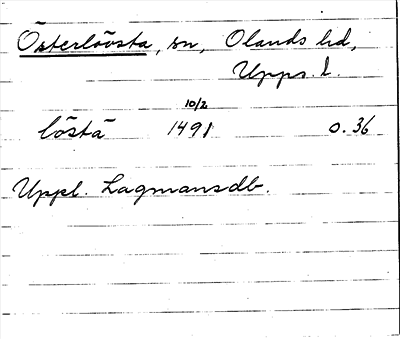 Österlövsta, sn, Olands hd,
Upps. l.
löstä 10/2 1491 0.36
Uppl. Lagmansdb.